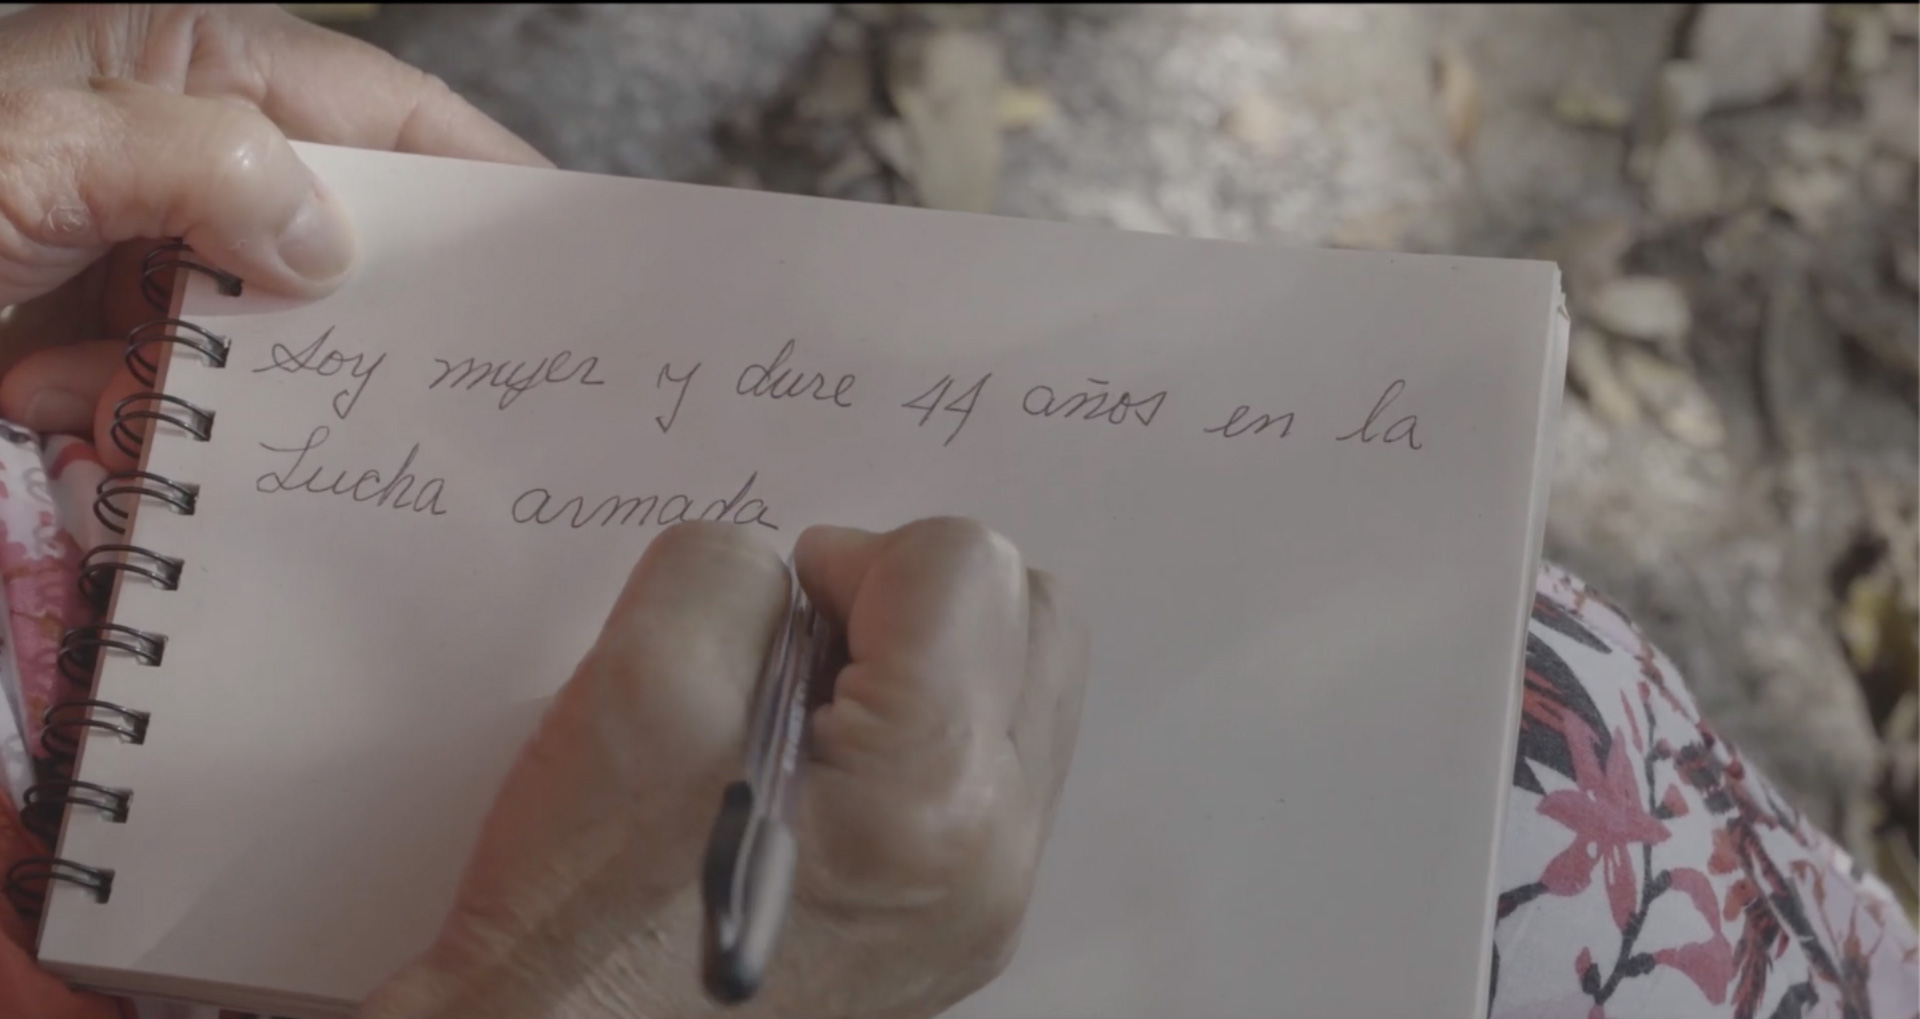 Soy mujer y dure 44 años en la
Lucha armada